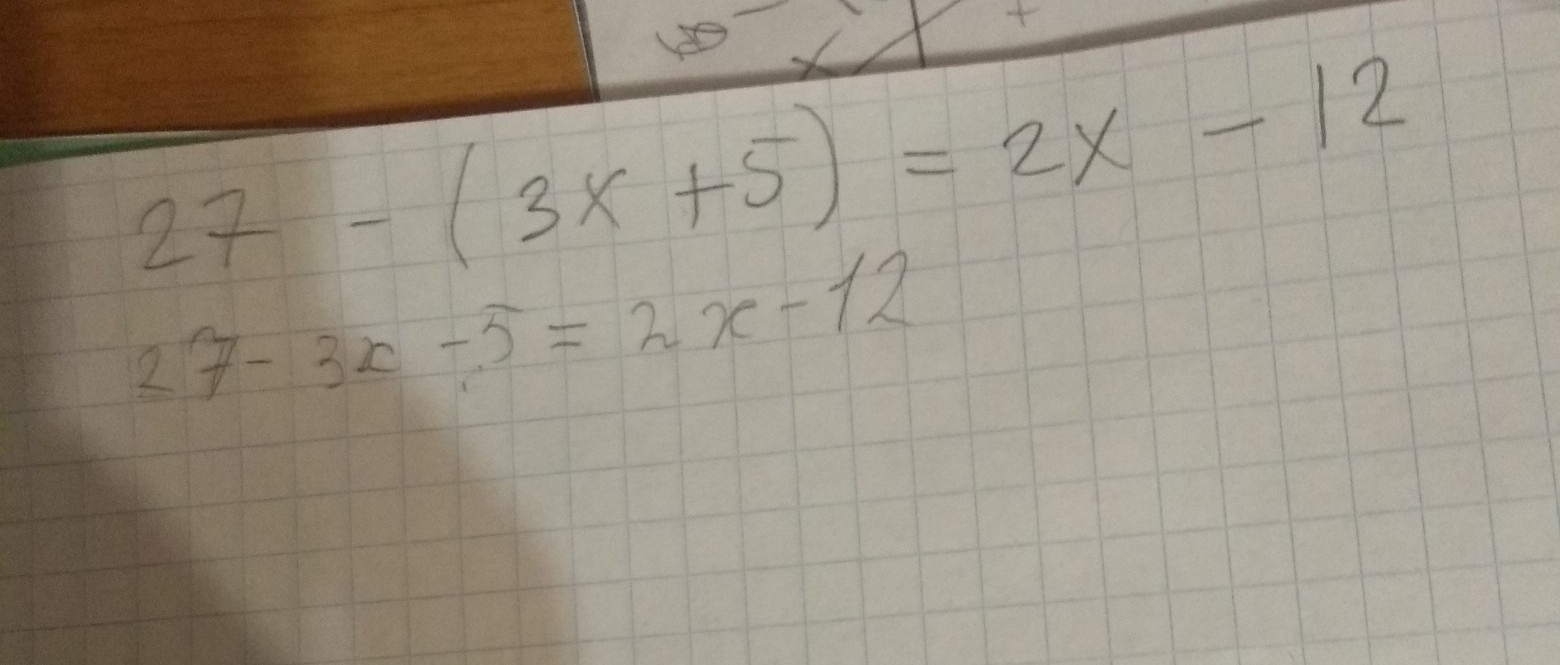 27 - (3x + 5) = 2x - 12
27 - 3x - 5 = 2x - 12